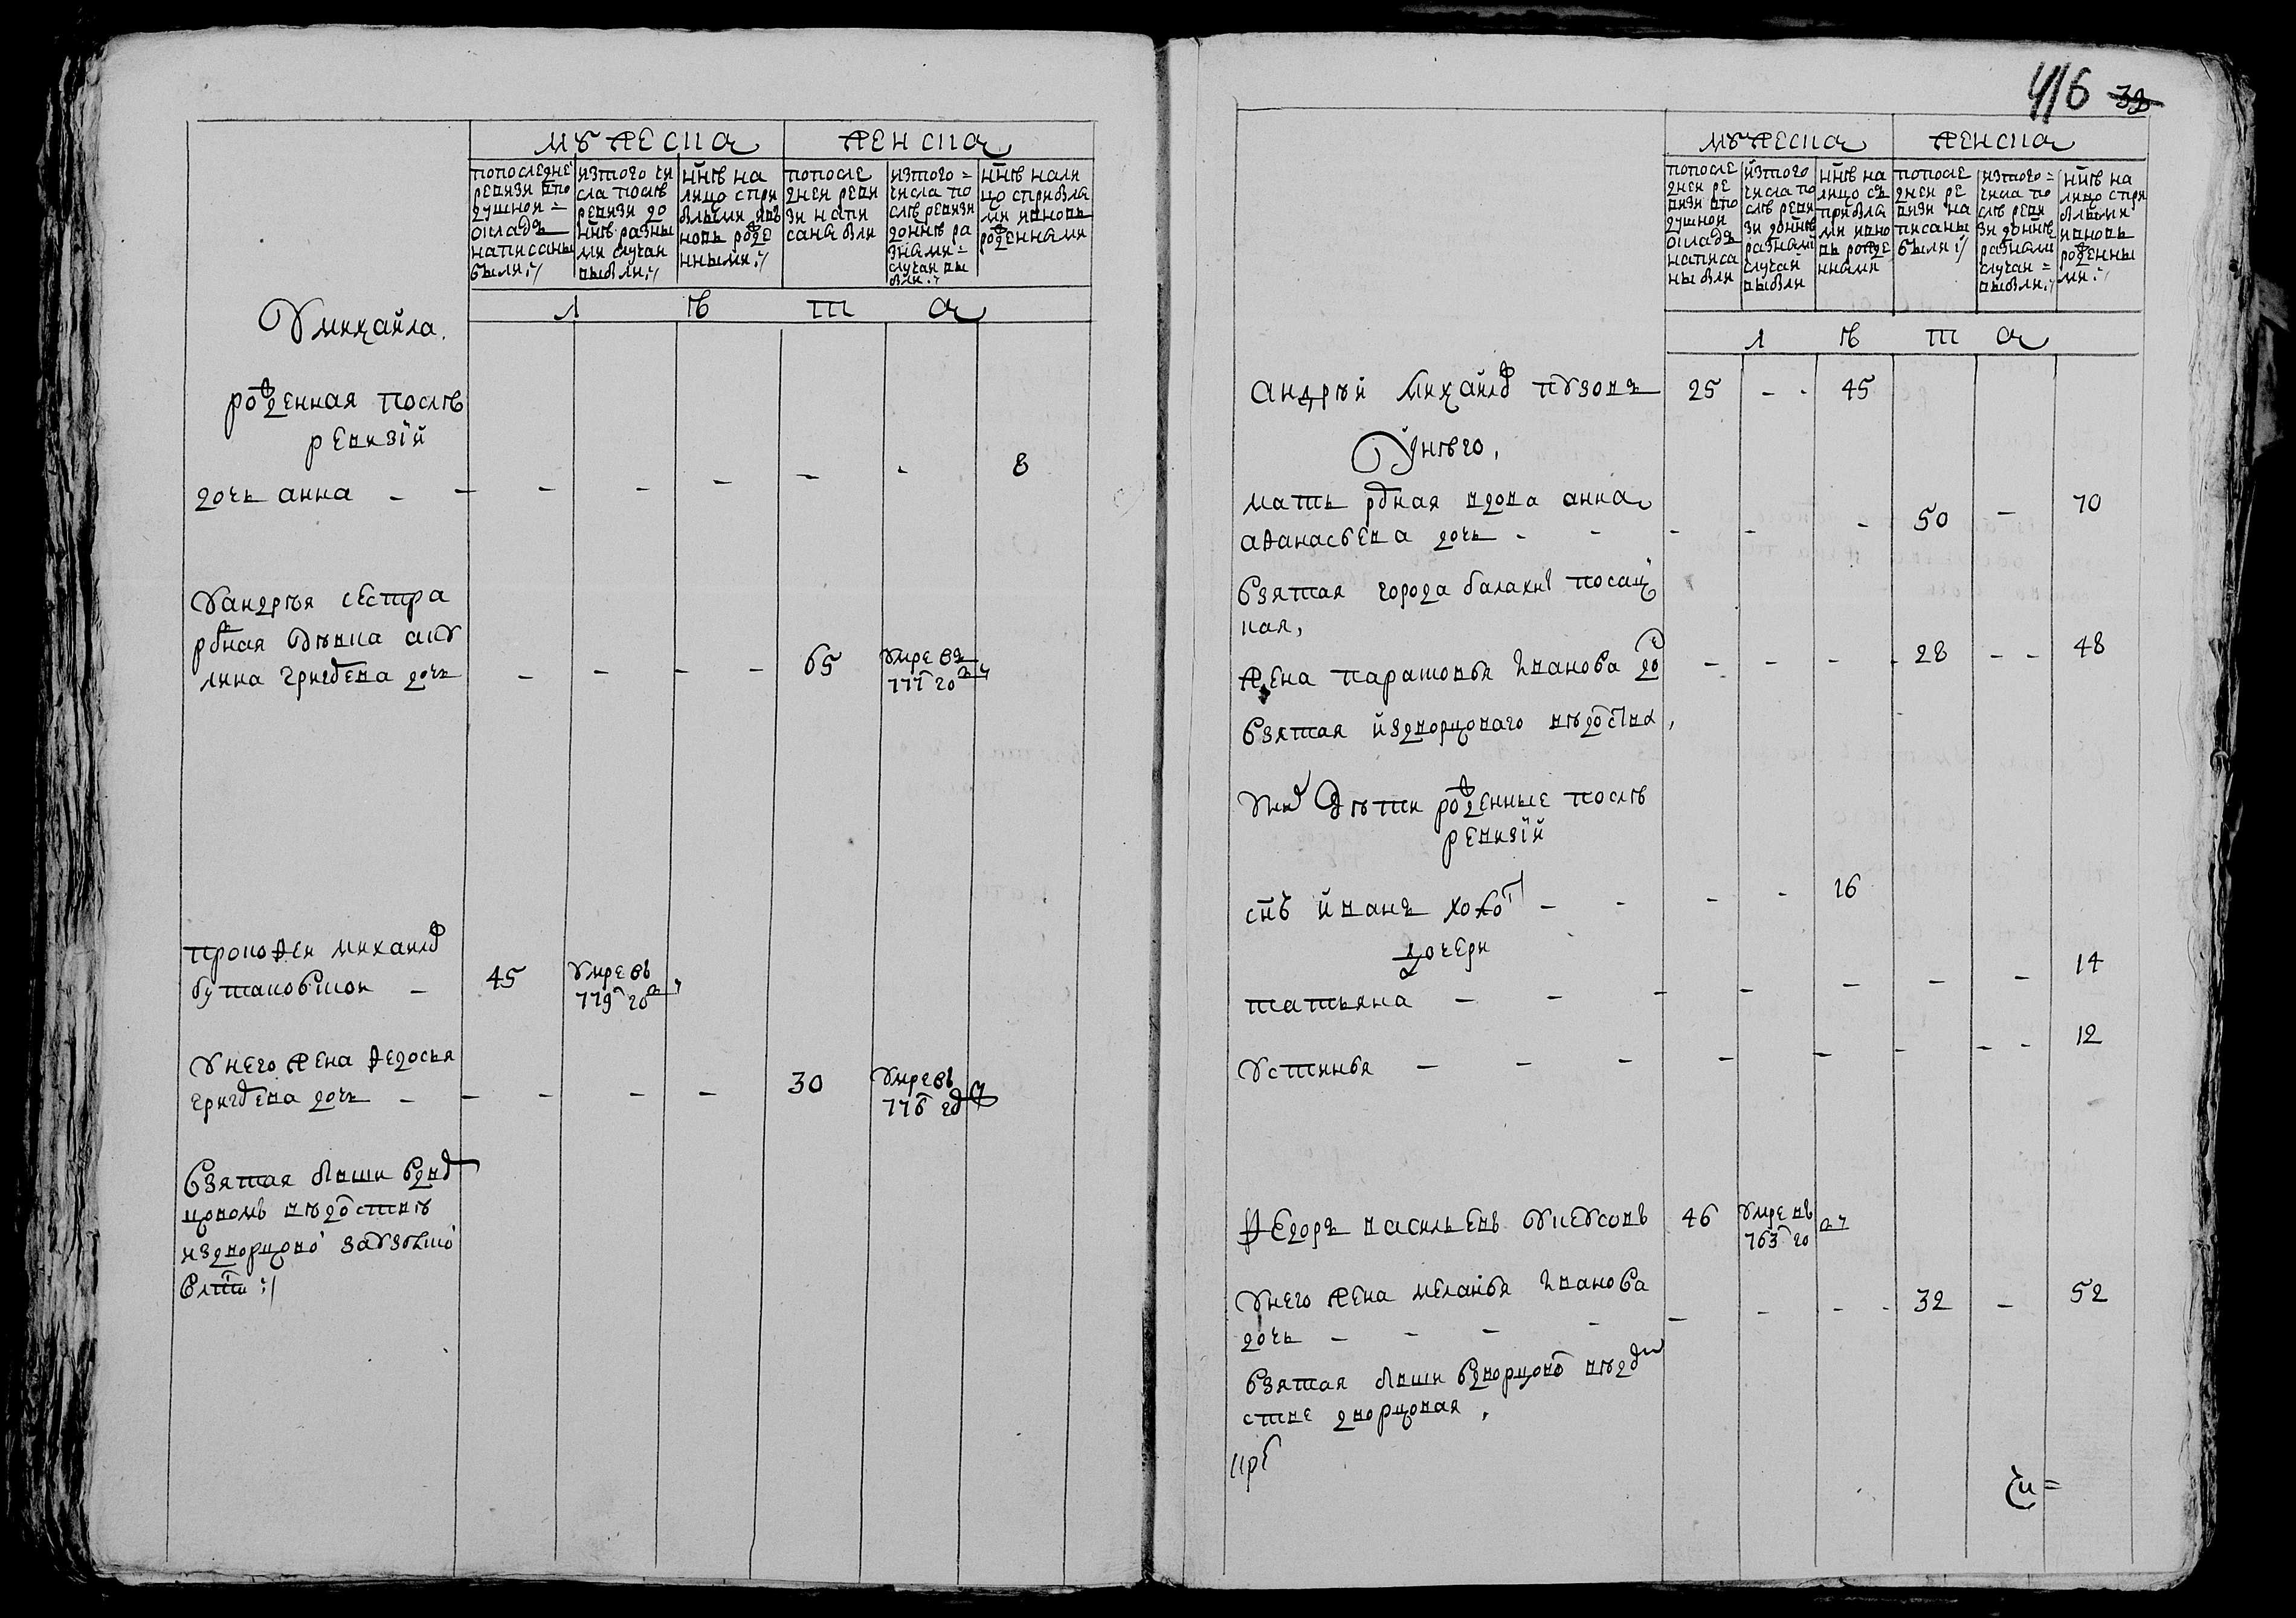 мужеска
женска
попоследне
ревизи впо
душном =
окладъ
написаны
были :/
изтого чи
сла послѣ
ревизи до
ннѣ разны
ми случаи
выбли :/
ннѣ на
лицо спри
былыми явъ
новь роже
нными :/
попосле
днеи реви
зи напи
саны бли
изтого =
числа по
слѣ ревизи
доннѣ ра
зными =
случаи вы
бли :/
ннѣ нали
цо сприбла
ми ивновь
рожденными
л ѣ т а
Умихайла.
рожденная послѣ
ревизïй
дочь анна - - - - - - - 8
Уандрѣя сестра
рдная дѣвка аку
лина григорева дочь - - - - 65 Умре въ
777 го
прокофеи михаилов
бутаковскои - 45 Умре въ
779 го
Унего жена федосья
григорева дочь - - - - - 30 Умре въ
776 году
взятая бывши вдво
цовомъ вѣдомствѣ
издворцовой заузолско
влсти :/
416 39
мужеска
женска
попосле
днеи ре
визи впо
душнои
окладъ
написа
ны бли
изтого
числа по
слѣ реви
зи доннѣ
разными
случаи
выбли
ннѣ на
лицо съ
прибла
ми ивно
въ рожде
нными
попосле
днеи ре
визи на
писаны
были :/
изтого =
числа по
слѣ реви
зи доннѣ
разными
случаи =
выбли :/
ннѣ на
лицо спри
былыми
ивновь
рожденны
ми :/
л ѣ т а
андрѣй михайлов пузовъ 25 - - 45
Унѣго,
мать рдная вдова анна
афанасьева дочь - - - - - 50 - 70
взятая города балахны посац
кая,
жена парасковья Иванова до - - - - 28 - - 48
взятая издворцоваго вѣдомства,
Уних дѣти рожденные послѣ
ревизïй
снъ иванъ холост - - - - 16
дочери
татьяна - - - - - - - 14
Устинья - - - - - - - - 12
Федоръ васильевъ 46 Умре въ
763 го
Унего жена меланья Иванова
дочь - - - - - - - - 32 - 52
взятая бывши вдворцово вѣдом
стве дворцовая.